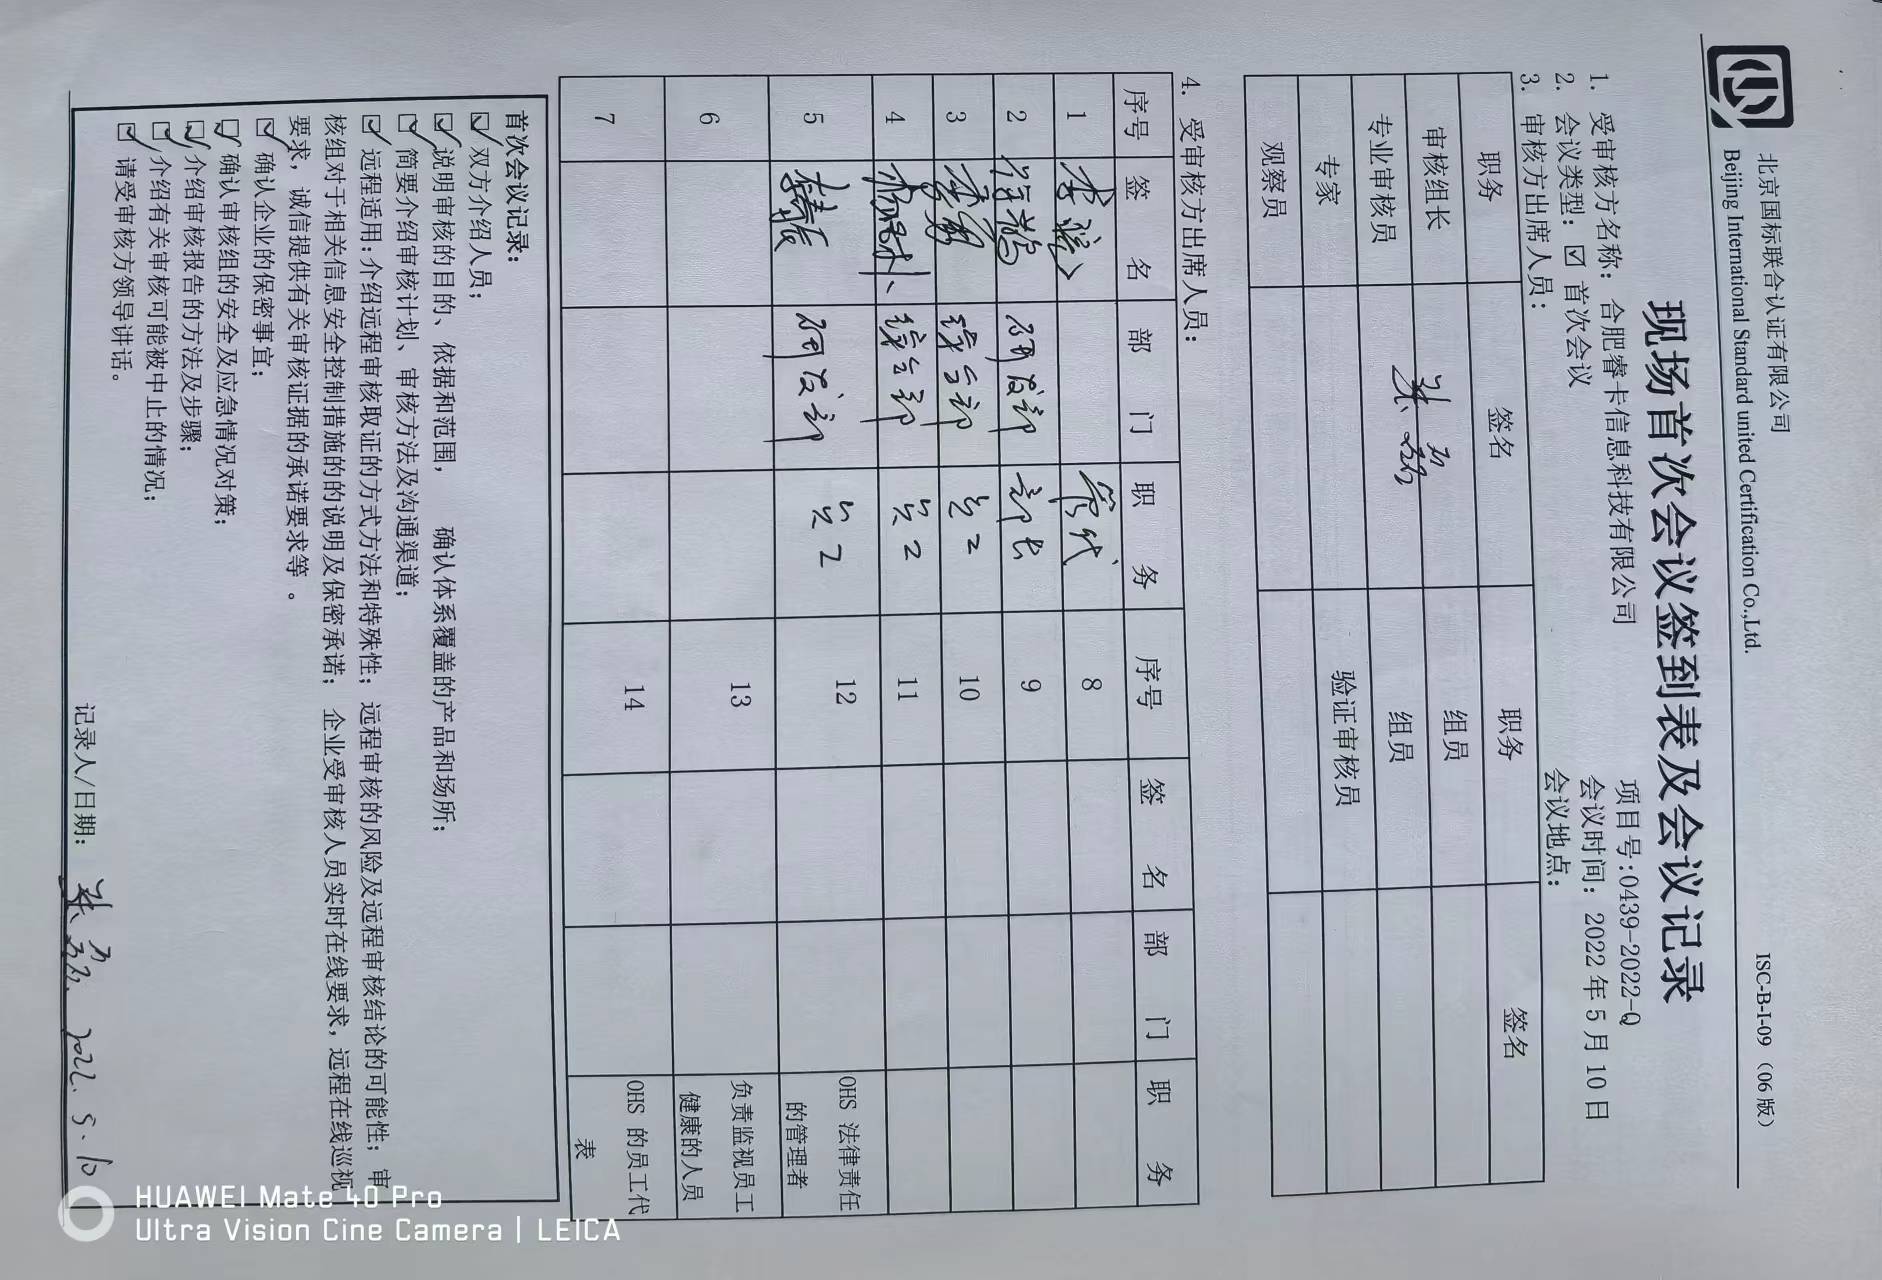 北京国标联合认证有限公司 ISC-B-I-09（06版）
Beijing International Standard united Certification Co.,Ltd.
现场首次会议签到表及会议记录
1. 受审核方名称：合肥睿卡信息科技有限公司 项目号:0439-2022-Q
2. 会议类型：☑ 首次会议 会议时间：2022年5月10日
3. 审核方出席人员： 会议地点：
职务 签名 职务 签名
审核组长 组员
专业审核员 组员
专家 验证审核员
观察员
4. 受审核方出席人员：
序号 签 名 部 门 职 务 序号 签 名 部 门 职 务
1 管代 8
2 研发部 部长 9
3 综合部 员工 10
4 综合部 员工 11
5 研发部 员工 12 OHS 法律责任
的管理者
6 13 负责监视员工
健康的人员
7 14 OHS 的员工代
表
首次会议记录：
☑ 双方介绍人员；
☑ 说明审核的目的、依据和范围， 确认体系覆盖的产品和场所；
☑ 简要介绍审核计划、审核方法及沟通渠道；
☑ 远程适用：介绍远程审核取证的方式方法和特殊性；远程审核的风险及远程审核结论的可能性；审
核组对于相关信息安全控制措施的的说明及保密承诺；企业受审核人员实时在线要求，远程在线巡视
要求，诚信提供有关审核证据的承诺要求等。
☑ 确认企业的保密事宜；
☑ 确认审核组的安全及应急情况对策；
☑ 介绍审核报告的方法及步骤；
☑ 介绍有关审核可能被中止的情况；
☑ 请受审核方领导讲话。
记录人/日期： 2022.5.10
HUAWEI Mate 40 Pro
Ultra Vision Cine Camera | LEICA